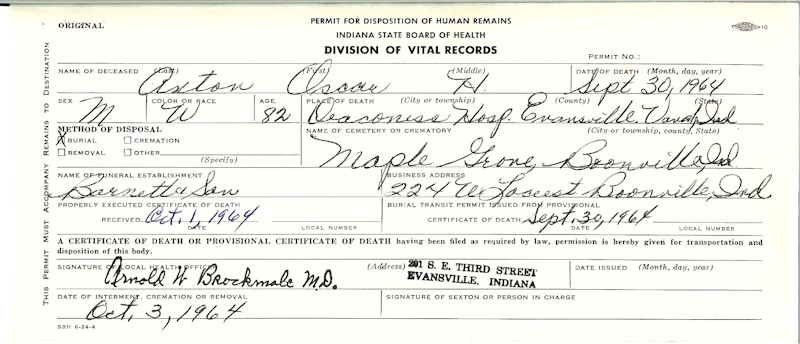 ORIGINAL
PERMIT FOR DISPOSITION OF HUMAN REMAINS
INDIANA STATE BOARD OF HEALTH
DIVISION OF VITAL RECORDS
10
PERMIT NO.:
THIS PERMIT MUST ACCOMPANY REMAINS TO DESTINATION
NAME OF DECEASED (Last) (First) (Middle) DATE OF DEATH (Month, day, year)
Axton Oscar H. Sept 30, 1964
SEX COLOR OR RACE AGE PLACE OF DEATH (City or township) (County) (State)
M W 82 Deaconess Hosp. Evansville, Ind
METHOD OF DISPOSAL NAME OF CEMETERY OR CREMATORY (City or township, county, State)
X BURIAL CREMATION
REMOVAL OTHER
(Specify)
Maple Grove, Boonville, Ind
NAME OF FUNERAL ESTABLISHMENT BUSINESS ADDRESS
Barnett & Son 224 W Locust Boonville, Ind
PROPERLY EXECUTED CERTIFICATE OF DEATH BURIAL TRANSIT PERMIT ISSUED FROM PROVISIONAL
RECEIVED Oct. 1, 1964 CERTIFICATE OF DEATH Sept. 30, 1964
DATE LOCAL NUMBER DATE LOCAL NUMBER
A CERTIFICATE OF DEATH OR PROVISIONAL CERTIFICATE OF DEATH having been filed as required by law, permission is hereby given for transportation and
disposition of this body.
SIGNATURE OF LOCAL HEALTH OFFICER (Address) 201 S. E. THIRD STREET DATE ISSUED (Month, day, year)
Arnold W Brockmole M.D. EVANSVILLE, INDIANA
DATE OF INTERMENT, CREMATION OR REMOVAL SIGNATURE OF SEXTON OR PERSON IN CHARGE
Oct. 3, 1964
SBH 6-24-4